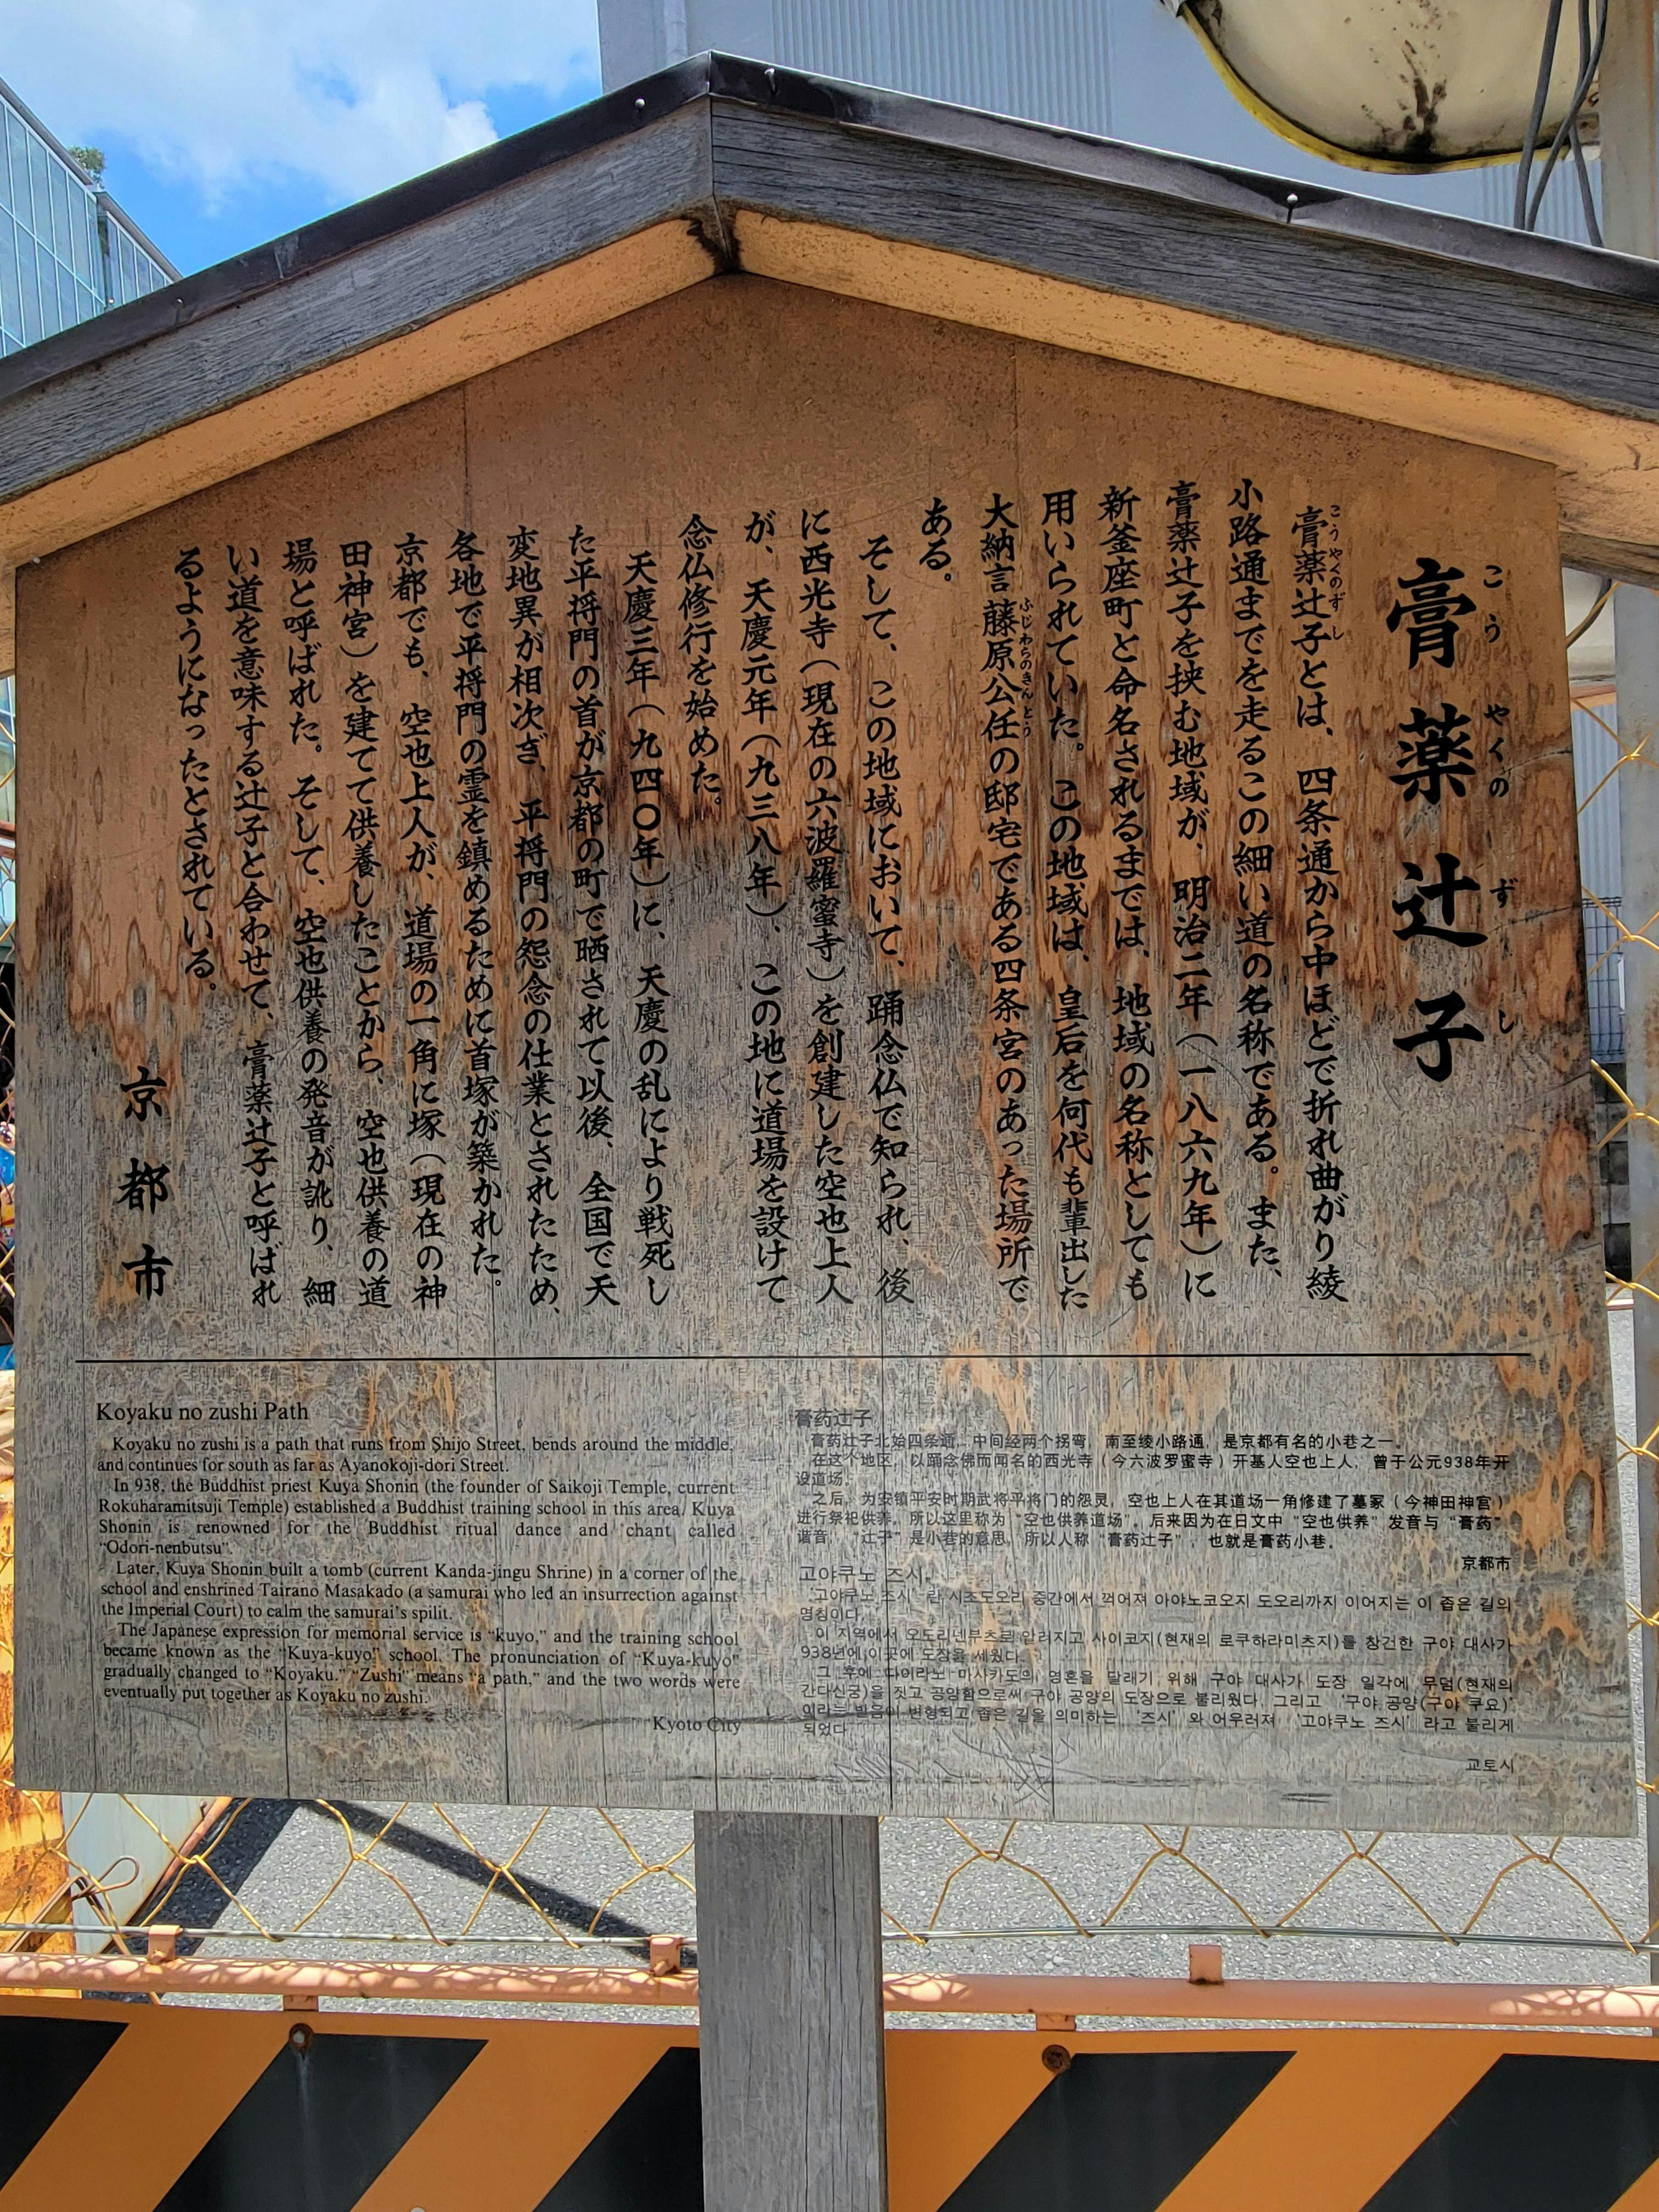 膏薬辻子
こうやくのずし
膏薬辻子とは、四条通から中ほどで折れ曲がり綾
こうやくのずし
小路通までを走るこの細い道の名称である。また、
膏薬辻子を挟む地域が、明治二年（一八六九年）に
新釜座町と命名されるまでは、地域の名称としても
用いられていた。この地域は、皇后を何代も輩出した
大納言藤原公任の邸宅である四条宮のあった場所で
ふじわらのきんとう
ある。
そして、この地域において、踊念仏で知られ、後
に西光寺（現在の六波羅蜜寺）を創建した空也上人
が、天慶元年（九三八年）、この地に道場を設けて
念仏修行を始めた。
天慶三年（九四〇年）に、天慶の乱により戦死し
た平将門の首が京都の町で晒されて以後、全国で天
変地異が相次ぎ、平将門の怨念の仕業とされたため、
各地で平将門の霊を鎮めるために首塚が築かれた。
京都でも、空也上人が、道場の一角に塚（現在の神
田神宮）を建てて供養したことから、空也供養の道
場と呼ばれた。そして、空也供養の発音が訛り、細
い道を意味する辻子と合わせて、膏薬辻子と呼ばれ
るようになったとされている。
京都市
Koyaku no zushi Path
Koyaku no zushi is a path that runs from Shijo Street, bends around the middle,
and continues for south as far as Ayanokoji-dori Street.
In 938, the Buddhist priest Kuya Shonin (the founder of Saikoji Temple, current
Rokuharamitsuji Temple) established a Buddhist training school in this area. Kuya
Shonin is renowned for the Buddhist ritual dance and chant called
“Odori-nenbutsu”.
Later, Kuya Shonin built a tomb (current Kanda-jingu Shrine) in a corner of the
school and enshrined Tairano Masakado (a samurai who led an insurrection against
the Imperial Court) to calm the samurai's spilit.
The Japanese expression for memorial service is “kuyo,” and the training school
became known as the “Kuya-kuyo” school. The pronunciation of “Kuya-kuyo”
gradually changed to “Koyaku.” “Zushi” means “a path,” and the two words were
eventually put together as Koyaku no zushi.
Kyoto City
膏药辻子
膏药辻子北始四条通，中间经两个拐弯，南至绫小路通，是京都有名的小巷之一。
在这个地区，以踊念佛而闻名的西光寺（今六波罗蜜寺）开基人空也上人，曾于公元938年开
设道场。
之后，为安镇平安时期武将平将门的怨灵，空也上人在其道场一角修建了墓冢（今神田神宫）
进行祭祀供养，所以这里称为“空也供养道场”。后来因为在日文中“空也供养”发音与“膏药”
谐音，“辻子”是小巷的意思，所以人称“膏药辻子”，也就是膏药小巷。
京都市
고야쿠노 즈시
‘고야쿠노 즈시’란 시조도오리 중간에서 꺾어져 아야노코오지 도오리까지 이어지는 이 좁은 길의
명칭이다.
이 지역에서 오도리넨부츠로 알려지고 사이코지(현재의 로쿠하라미츠지)를 창건한 구야 대사가
938년에 이곳에 도장을 세웠다.
그 후에 다이라노 마사카도의 영혼을 달래기 위해 구야 대사가 도장 일각에 무덤(현재의
간다신궁)을 짓고 공양함으로써 구야 공양의 도장으로 불리웠다. 그리고 ‘구야 공양(구야 쿠요)’
이라는 발음이 변형되고 좁은 길을 의미하는 ‘즈시’와 어우러져 ‘고야쿠노 즈시’라고 불리게
되었다.
교토시